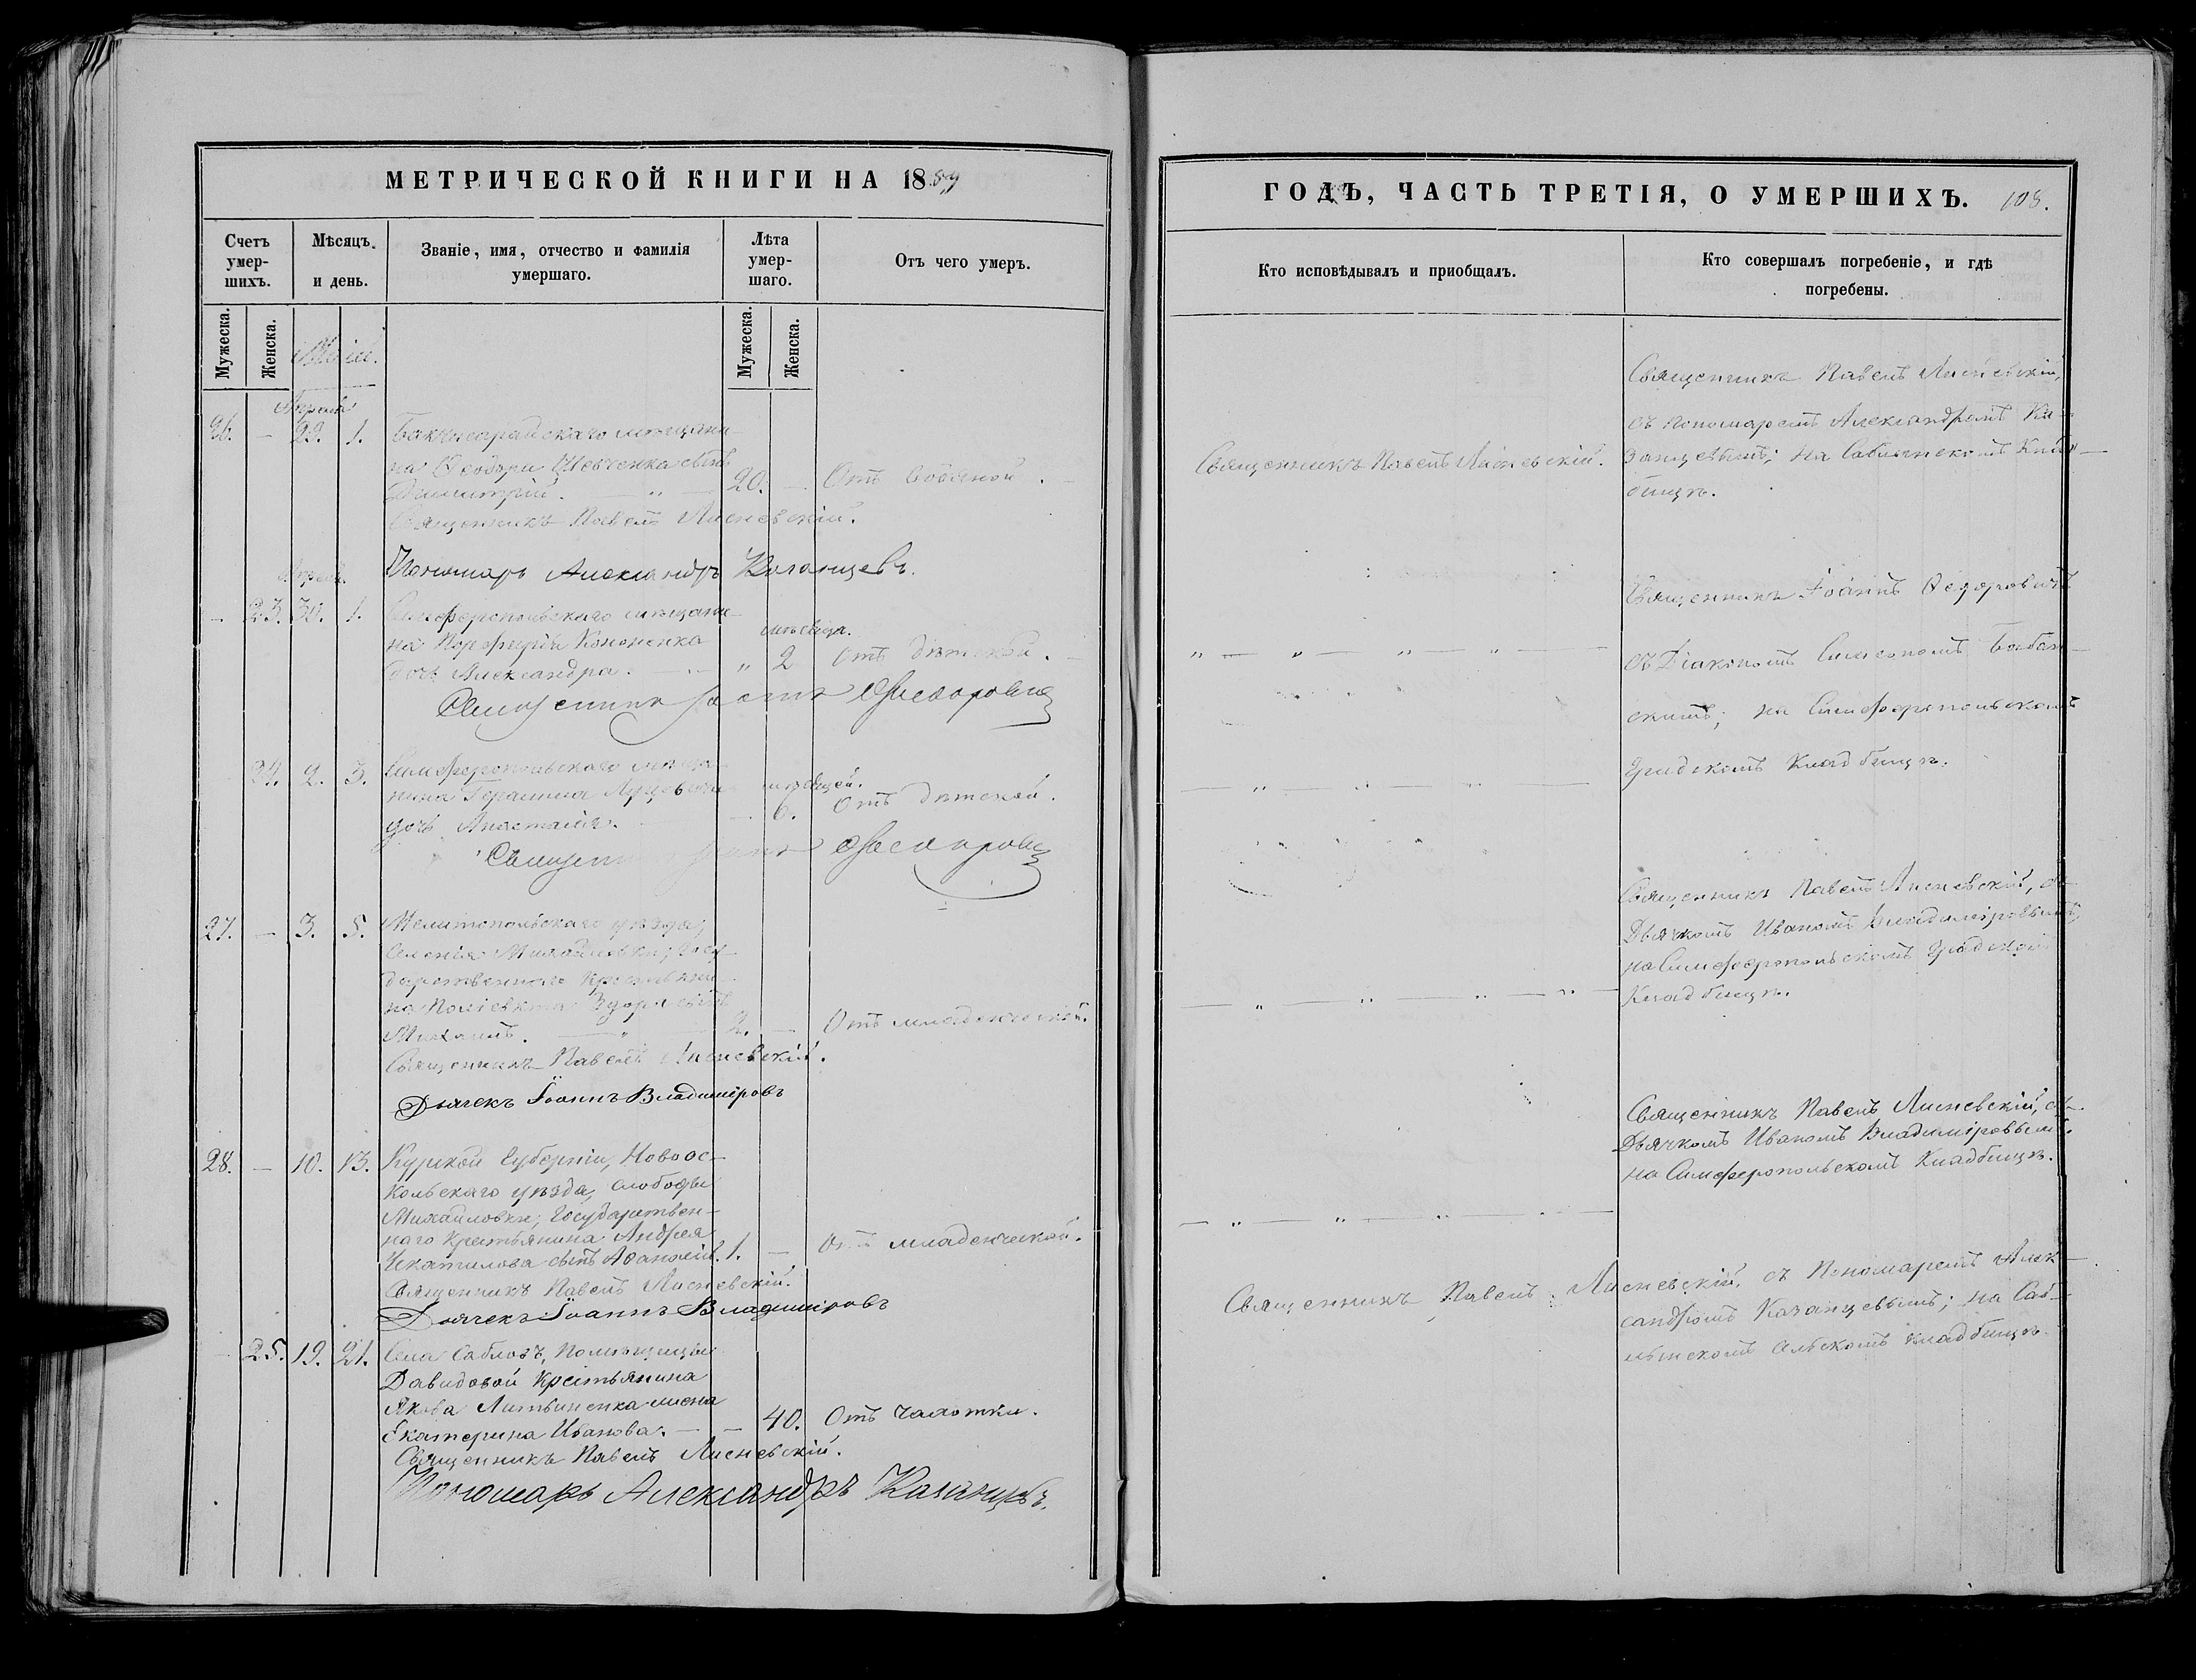 МЕТРИЧЕСКОЙ КНИГИ НА 1859
Счетъ умер-шихъ.
Мѣсяцъ. и день.
Званіе, имя, отчество и фамилія
умершаго.
Лѣта умер-шаго.
Отъ чего умеръ.
Мужеска.
Женска.
Май.
Мужеска.
Женска.
Апрѣля
26. — 29. 1. Бахчисарайскаго мѣщани-
на Ѳеодора Шевченка сынъ
Димитрій. — „ — 20. — Отъ водяной.
Священникъ Павелъ Лисневскій.
Пономарь Александръ Казанцевъ.
Апрѣля.
— 23. 30. 1. Симферопольскаго мѣщани-
на Порфирія Кононенка мѣсяца.
дочь Александра. — „ 2 Отъ дѣтской.
Священникъ Іоаннъ Ѳеодоровичъ
24. 2. 3. Симферопольскаго мѣща-
нина Герасима мѣсяцей.
дочь Анастасія. — 6. Отъ дѣтской.
Священникъ Іоаннъ Ѳеодоровичъ
27. — 3. 5. Мелитопольскаго уѣзда,
Селенія Михайловки; Госу-
дарственнаго крестьяни-
на Поліевкта сынъ
Михаилъ. — „ — 2. — Отъ младенческой.
Священникъ Павелъ Лисневскій.
Дьячекъ Іоаннъ Владиміровъ
28. — 10. 13. Курской Губерніи, Новоос-
кольскаго уѣзда, слободы
Михайловки; Государствен-
наго крестьянина Андрея
Чекатилова сынъ Аѳанасій. 1. — Отъ младенческой.
Священникъ Павелъ Лисневскій.
Дьячекъ Іоаннъ Владиміровъ
25. 19. 21. Села Сабловъ, Помѣщицы
Давидовой крестьянина
Якова Литвиненка жена
Екатерина Иванова. — — 40. Отъ чахотки.
Священникъ Павелъ Лисневскій.
Пономарь Александръ Казанцевъ.
ГОДЪ, ЧАСТЬ ТРЕТІЯ, О УМЕРШИХЪ. 108.
Кто исповѣдывалъ и пріобщалъ.
Кто совершалъ погребеніе, и гдѣ
погребены.
Священникъ Павелъ Лисневскій,
съ пономаремъ Александромъ Ка-
Священникъ Павелъ Лисневскій. занцевымъ; на СаблынскомъКлад-
бищѣ.
Священникъ Іоаннъ Ѳеодоровичъ
съ Діакономъ Симеономъ Бабан-
скимъ; на Симферопольскомъ
Градскомъ Кладбищѣ.
Священникъ Павелъ Лисневскій, съ
Дьячкомъ Иваномъ Владиміровымъ,
на Симферопольскомъ Градскомъ
Кладбищѣ.
Священникъ Павелъ Лисневскій, съ
Дьячкомъ Иваномъ Владиміровымъ.
на Симферопольскомъ Кладбищѣ.
Священникъ Павелъ Лисневскій. съ Пономаремъ Алек-
сандромъ Казанцевымъ; на Саб-
лынскомъ сельскомъ кладбищѣ.